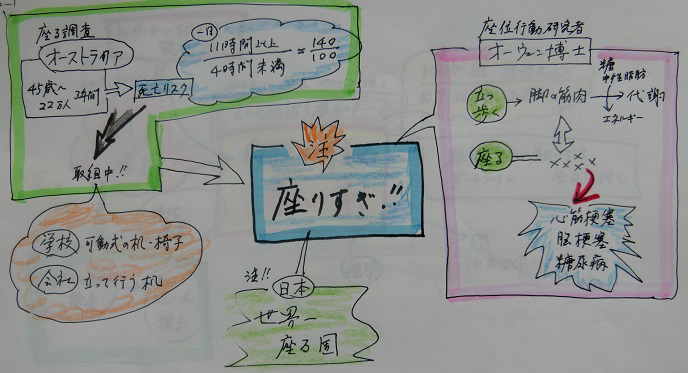 座る調査
オーストラリア
45歳〜
22万人
3年間
死亡リスク
一日
11時間以上
4時間未満
=
140
100
取組中!!
学校 可動式の机・椅子
会社 立って行う机
注
座りすぎ!!
注!!
日本
世界一
座る国
座位行動研究者
オーウェン博士
立つ
歩く
脚の筋肉
糖
中性脂肪
代謝
エネルギー
座る
××××
心筋梗塞
脳梗塞
糖尿病